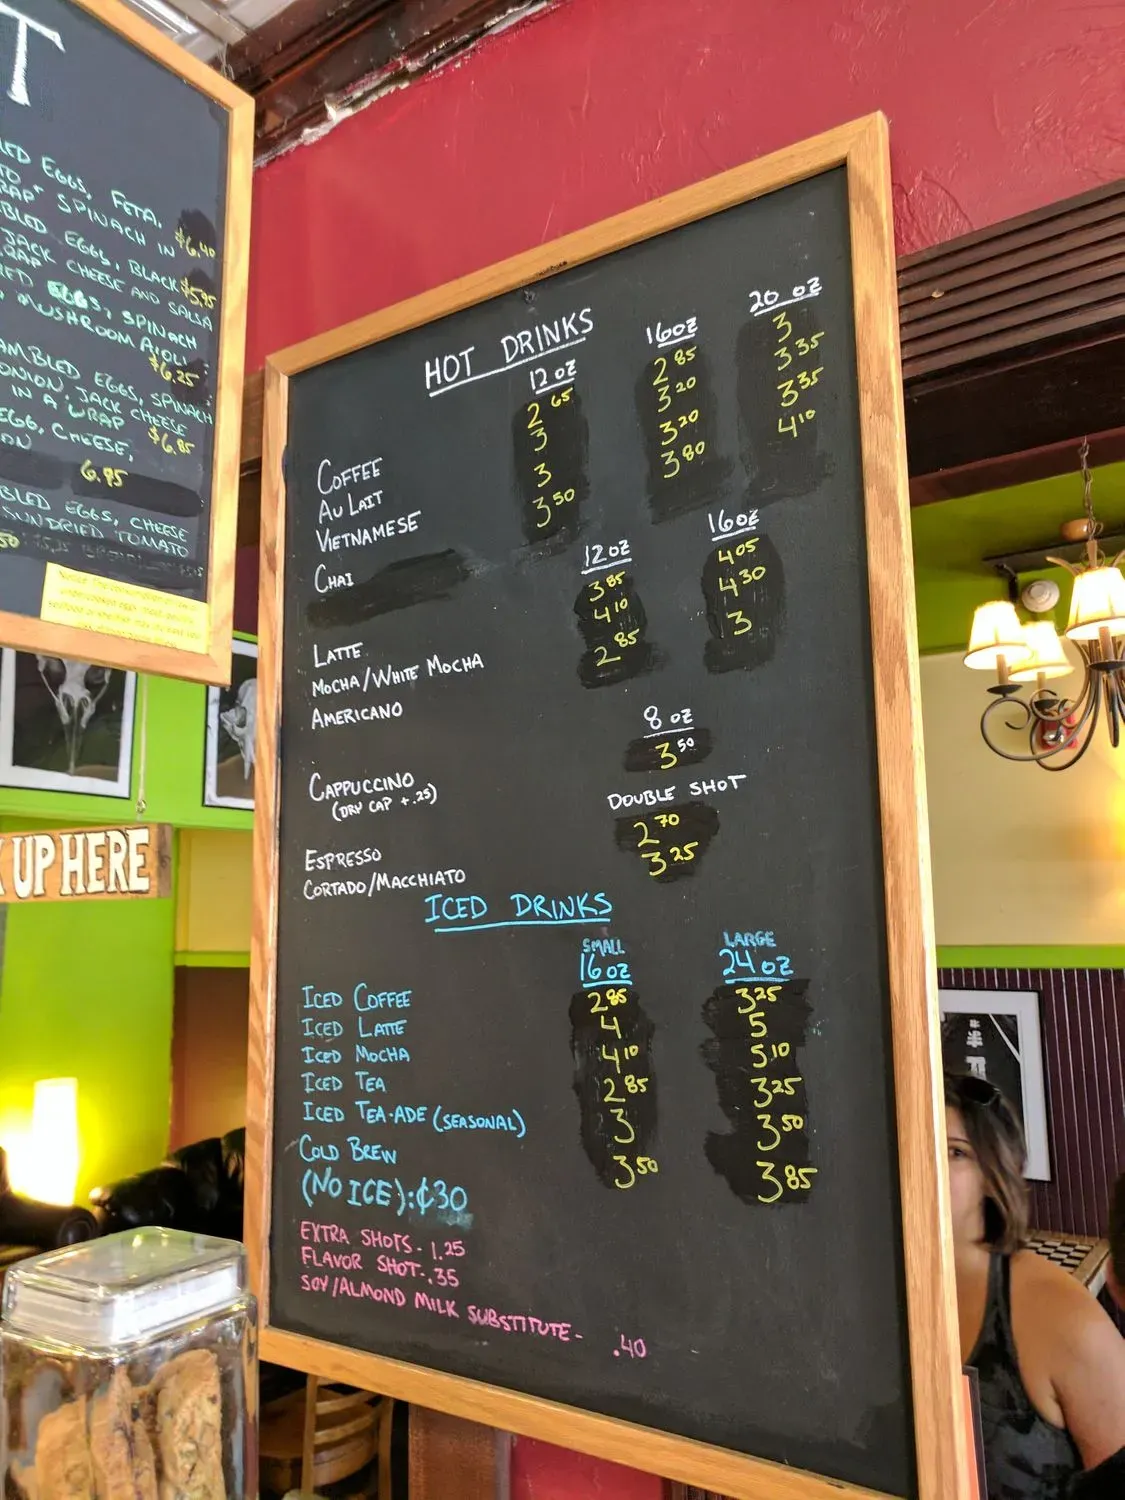 T
LED EGGS, FETA,
TO + SPINACH IN
RAP $6.40
BLED EGGS, BLACK
JACK CHEESE AND SALSA
RAP $5.95
RED EGGS, SPINACH
MUSHROOM AIOLI
$6.25
AMBLED EGGS, SPINACH
ONION, JACK CHEESE
IN A WRAP $6.85
EGG, CHEESE,
ON
6.95
BLED EGGS, CHEESE
SUNDRIED TOMATO
50
K UP HERE
HOT DRINKS
12 oz 16oz 20 oz
COFFEE 2 65 2 85 3
AU LAIT 3 3 20 3 35
VIETNAMESE 3 3 20 3 35
CHAI 3 50 3 80 4 10
12 oz 16 oz
LATTE 3 85 4 05
MOCHA/WHITE MOCHA 4 10 4 30
AMERICANO 2 85 3
8 oz
CAPPUCCINO 3 50
(DRY CAP +.25)
DOUBLE SHOT
ESPRESSO 2 70
CORTADO/MACCHIATO 3 25
ICED DRINKS
SMALL LARGE
16 oz 24 oz
ICED COFFEE 2 85 3 25
ICED LATTE 4 5
ICED MOCHA 4 10 5 10
ICED TEA 2 85 3 25
ICED TEA-ADE (SEASONAL) 3 3 50
COLD BREW 3 50 3 85
(NO ICE):¢30
EXTRA SHOTS - 1.25
FLAVOR SHOT-.35
SOY/ALMOND MILK SUBSTITUTE - .40